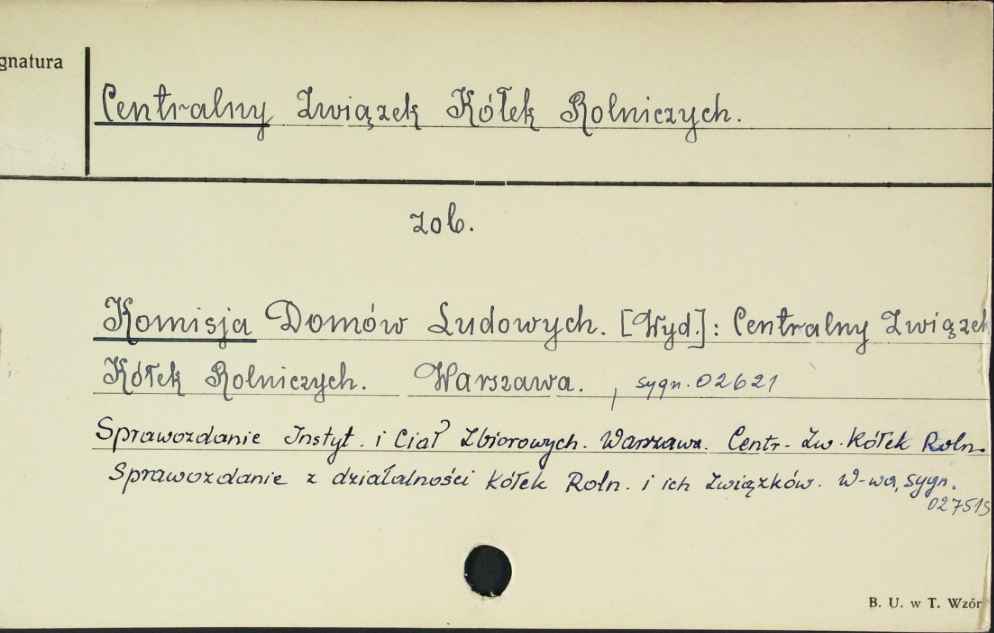 gnatura
Centralny Związek Kółek Rolniczych.
zob.
Komisja Domów Ludowych. [Wyd.]: Centralny Związek
Kółek Rolniczych. Warszawa. , sygn. 02621
Sprawozdanie Instyt. i Ciał Zbiorowych. Warszawa. Centr. Zw. Kółek Roln.
Sprawozdanie z działalności Kółek Roln. i ich Związków. W-wa, sygn.
027515
B. U. w T. Wzór